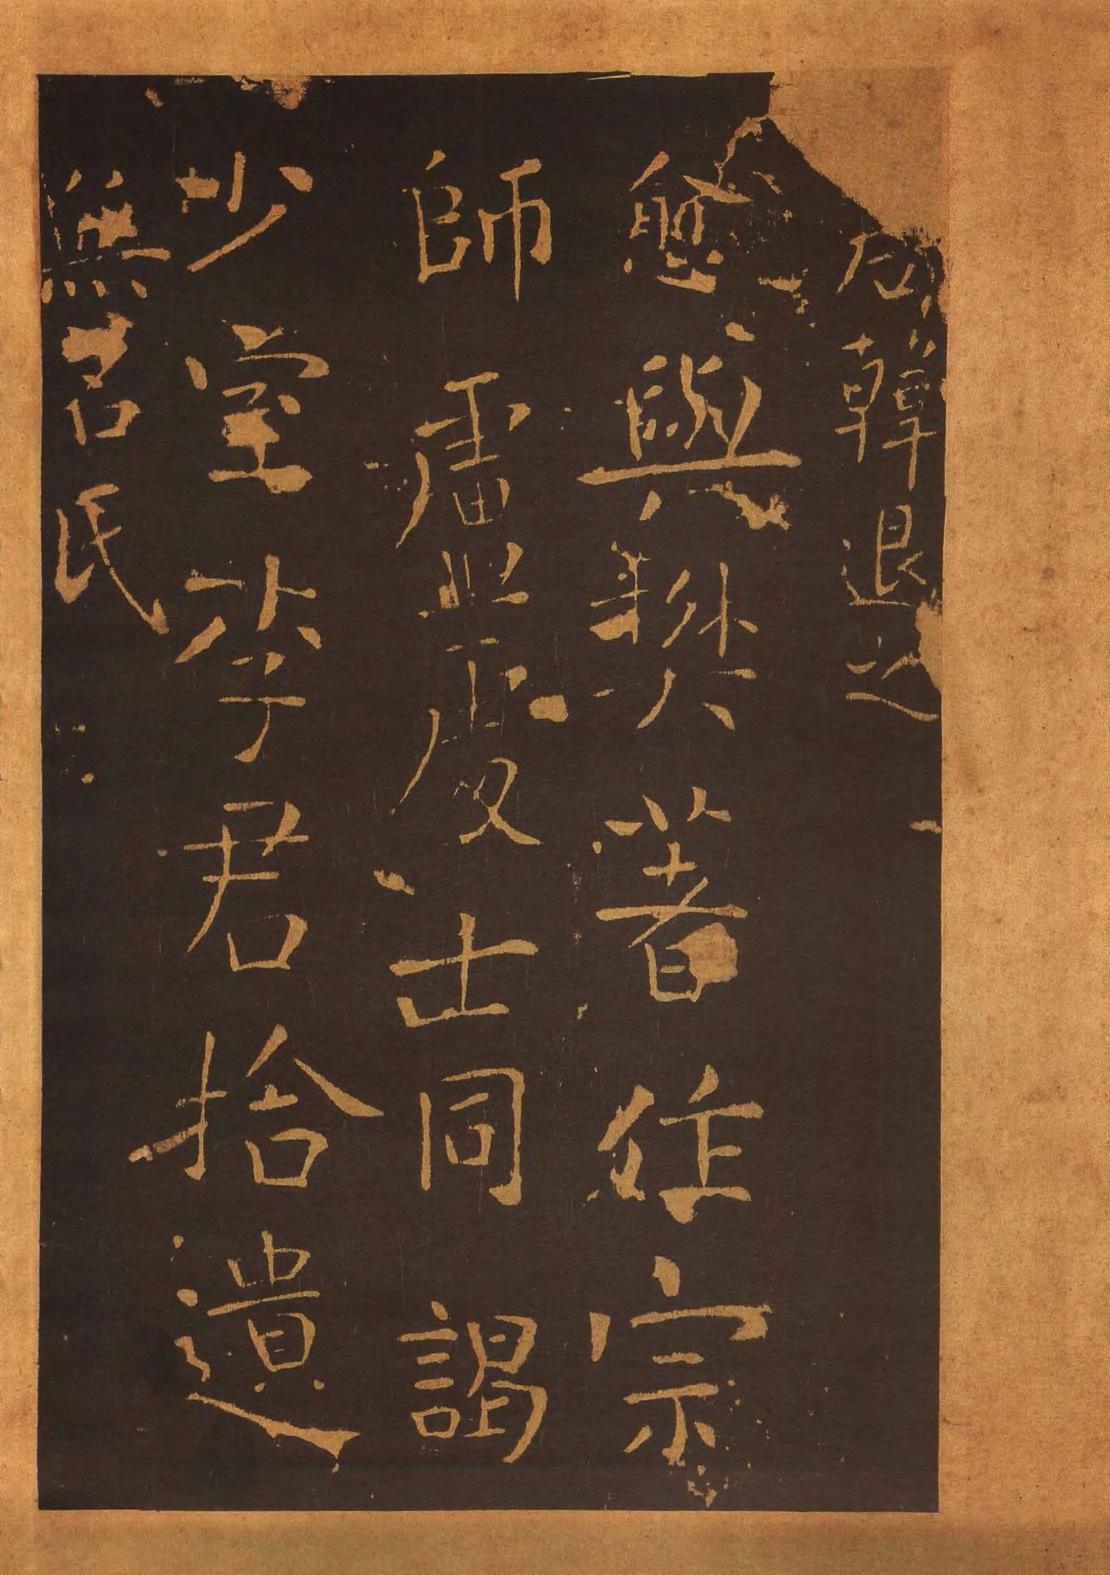 右韓退之
愈與樊著作宗
師盧處士同謁
少室李君拾遺
無名氏